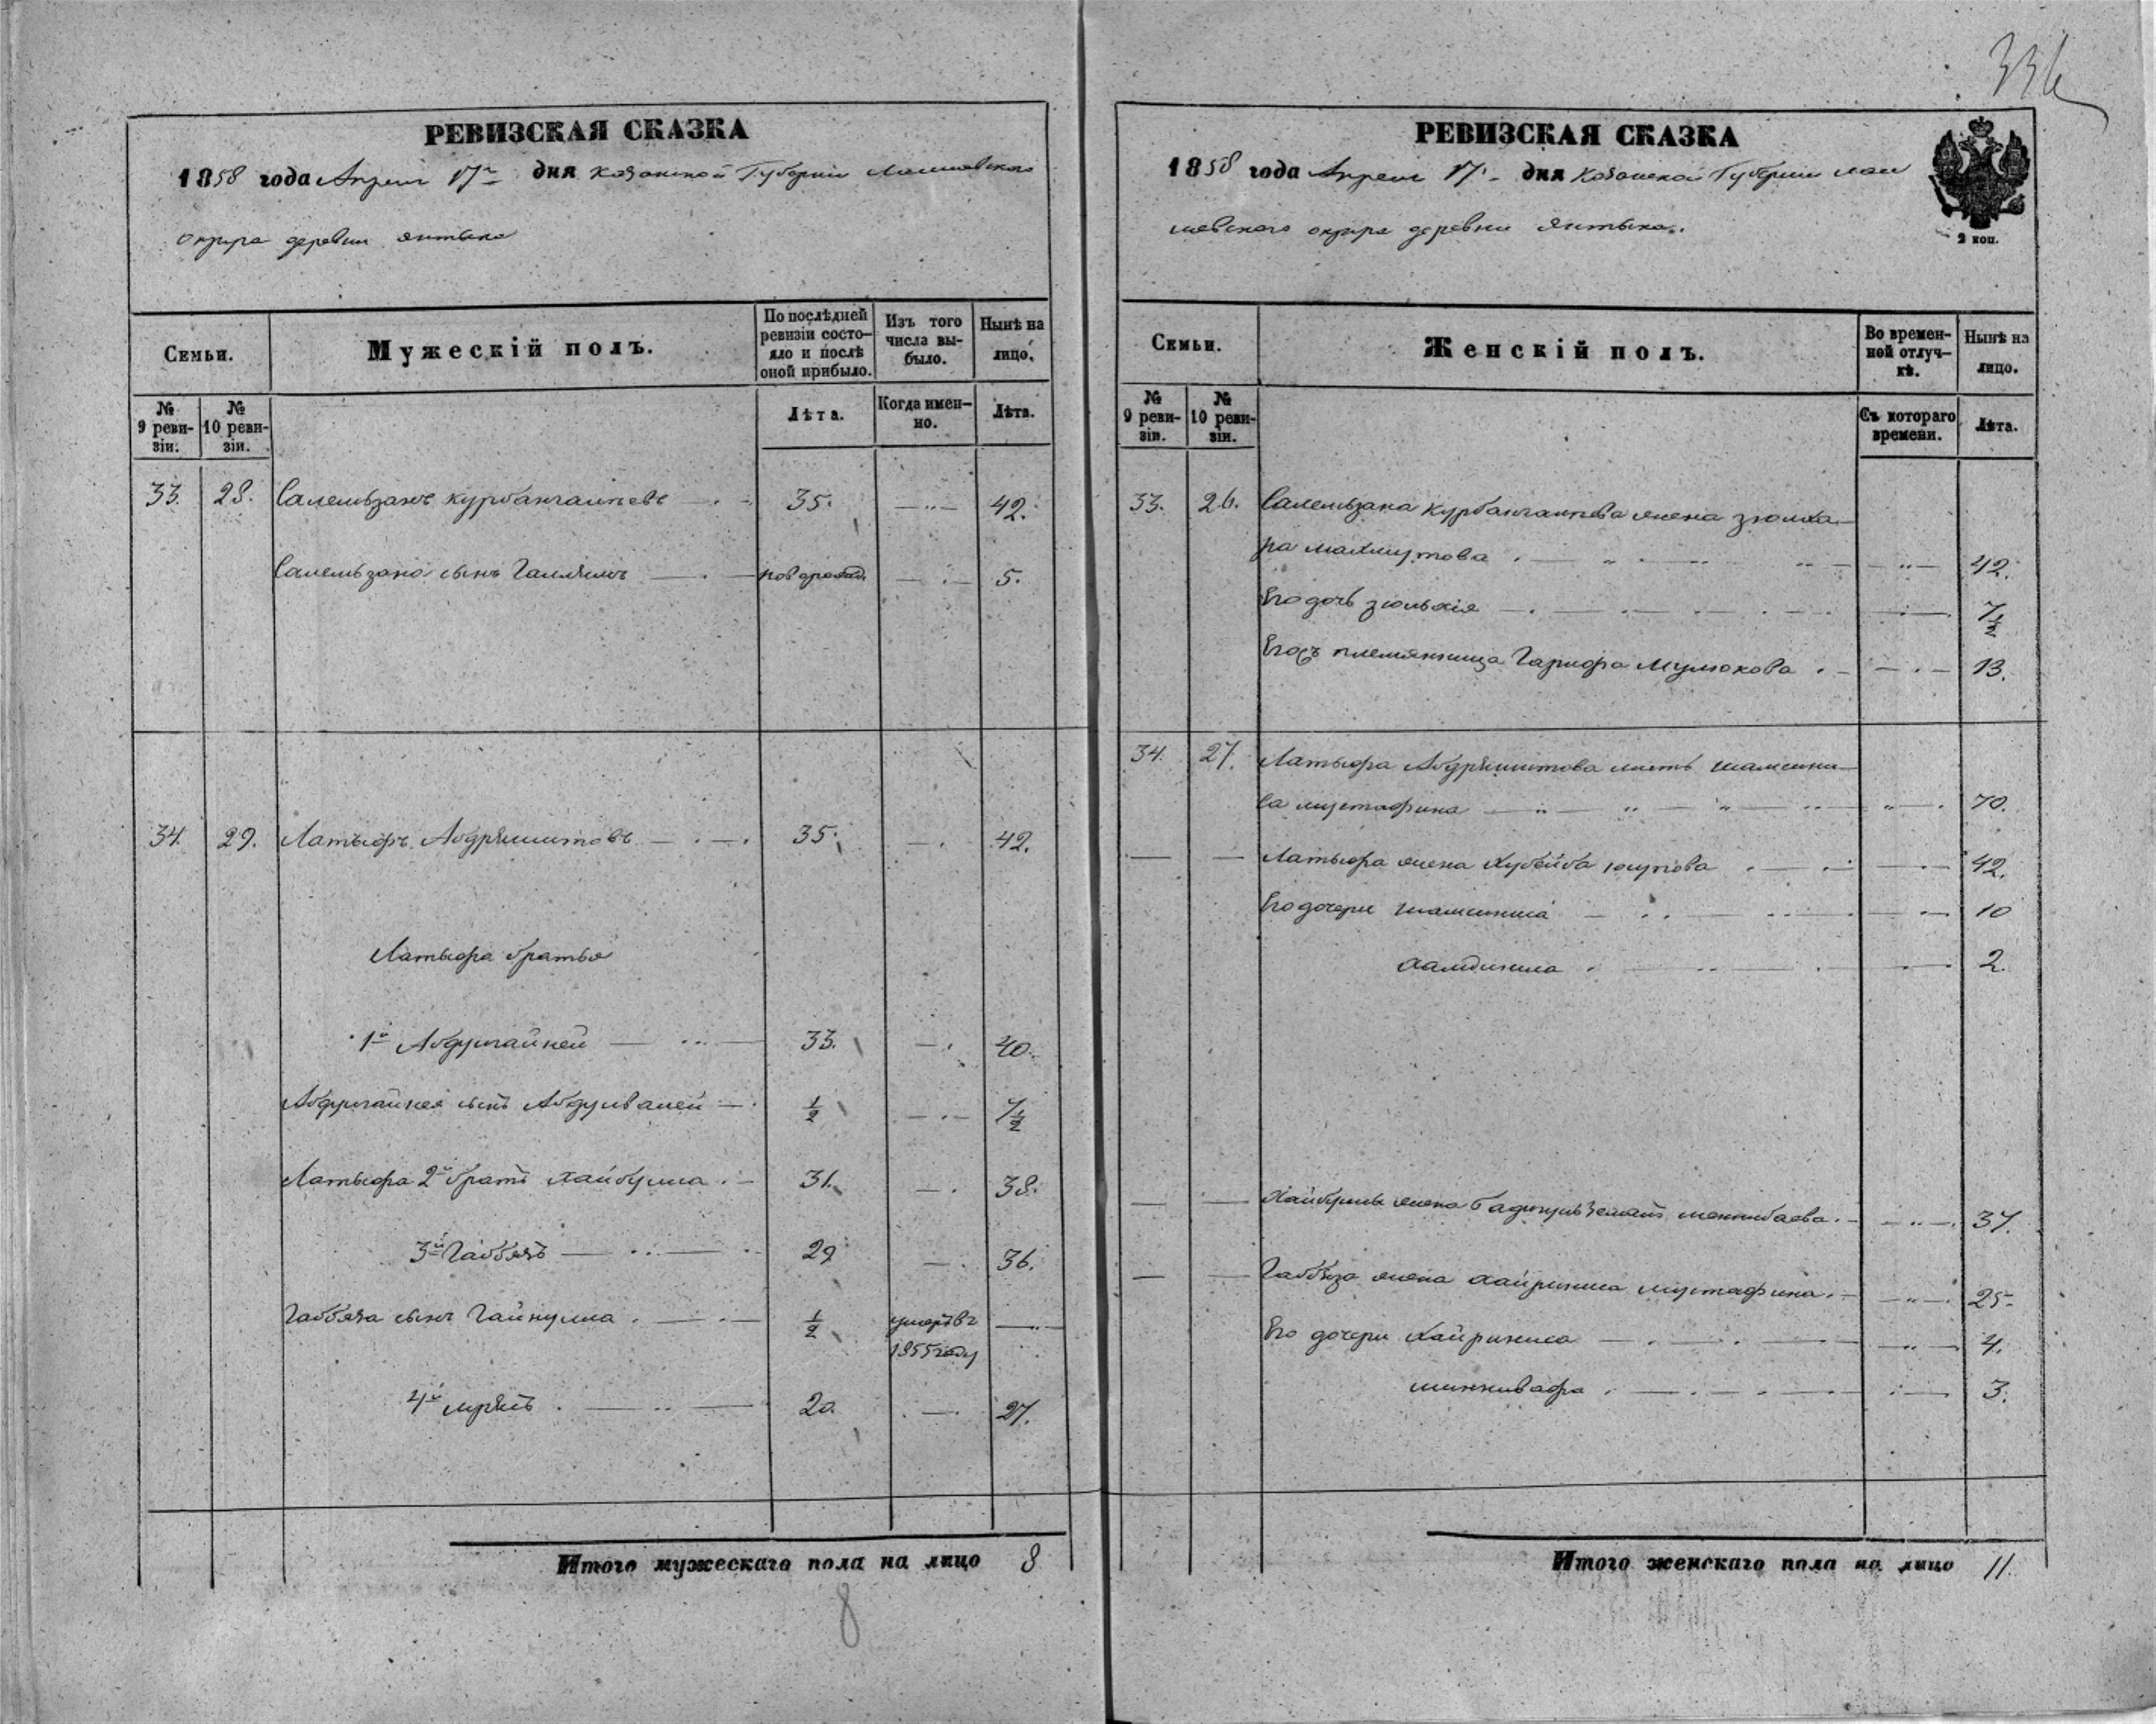 336
РЕВИЗСКАЯ СКАЗКА
1858 года Апреля 17го дня Казанской Губернии Лаишевского
округа деревни Янтыка
Семьи.
Мужескій полъ.
По послѣдней ревизіи состояло и послѣ оной прибыло.
Изъ того числа выбыло.
Нынѣ на лицо.
№ 9 ревизіи.
№ 10 ревизіи.
Лѣта.
Когда именно.
Лѣта.
33. 28. Салемьзанъ Курбангалиевъ 35. 42.
Салемьзана сынъ новорожд. 5.
34. 29. Латыфъ Абдряшитовъ 35. 42.
Латыфа братья
1й Абдулгайней 33. 40.
Абдулгайнея сынъ Абдулвалей 1/2 7 1/2
Латыфа 2й братъ Хайбулла 31. 38.
3й Габбязъ 29 36.
Габбяза сынъ Гайнулла 1/2 умеръ в
1855 году
4й 20. 27.
Итого мужескаго пола на лицо 8
8
РЕВИЗСКАЯ СКАЗКА
1858 года Апреля 17го дня Казанской Губернии Лаи
шевского округа деревни Янтыка.
2 коп.
Семьи.
Женскій полъ.
Во временной отлучкѣ.
Нынѣ на лицо.
№ 9 ревизіи.
№ 10 ревизіи.
Съ котораго времени.
Лѣта.
33. 26. Салемьзана Курбангалиева жена Зюлха
ра Махмутова 42.
Его дочь Зюльхия 7 1/2
Его племянница Гарифа Мулюкова 13.
34. 27. Латыфа Абдряшитова мать Шамсини
са Мустафина 70.
Латыфа жена Хубейба Юсупова 42.
Его дочери 10
2.
Хайбуллы жена 37.
Габбяза жена Мустафина 25.
Его дочери Хайриниса 4.
Миннивафа 3.
Итого женскаго пола на лицо 11.